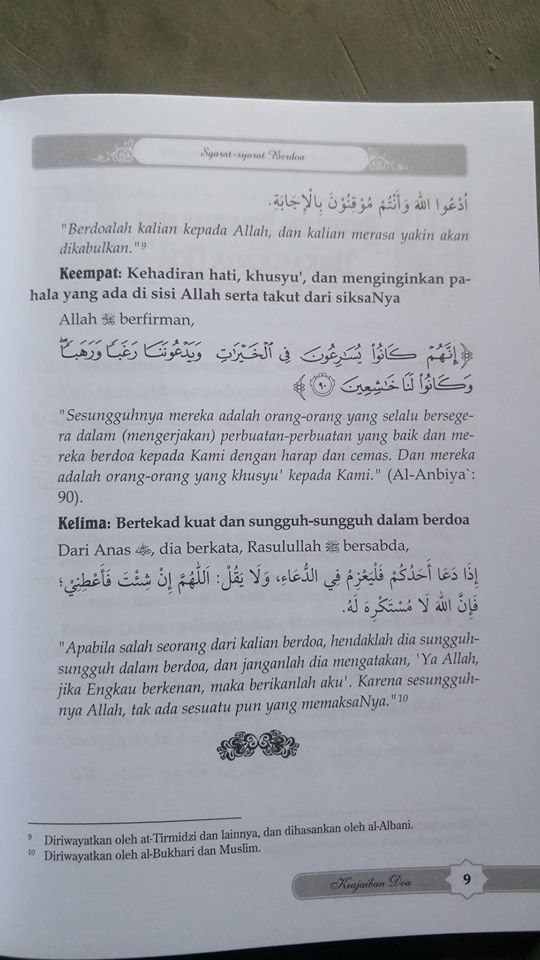 Syarat-syarat Berdoa
اُدْعُوا اللهَ وَأَنْتُمْ مُوْقِنُوْنَ بِالْإِجَابَةِ.
"Berdoalah kalian kepada Allah, dan kalian merasa yakin akan
dikabulkan."⁹
Keempat: Kehadiran hati, khusyu', dan menginginkan pa-
hala yang ada di sisi Allah serta takut dari siksaNya
Allah ﷻ berfirman,
﴿إِنَّهُمْ كَانُوا۟ يُسَـٰرِعُونَ فِى ٱلْخَيْرَٰتِ وَيَدْعُونَنَا رَغَبًا وَرَهَبًا ۖ
وَكَانُوا۟ لَنَا خَـٰشِعِينَ ٩٠﴾
"Sesungguhnya mereka adalah orang-orang yang selalu bersege-
ra dalam (mengerjakan) perbuatan-perbuatan yang baik dan me-
reka berdoa kepada Kami dengan harap dan cemas. Dan mereka
adalah orang-orang yang khusyu' kepada Kami." (Al-Anbiya`:
90).
Kelima: Bertekad kuat dan sungguh-sungguh dalam berdoa
Dari Anas ؓ, dia berkata, Rasulullah ﷺ bersabda,
إِذَا دَعَا أَحَدُكُمْ فَلْيَعْزِمْ فِي الدُّعَاءِ، وَلَا يَقُلْ: اَللّٰهُمَّ إِنْ شِئْتَ فَأَعْطِنِيْ؛
فَإِنَّ اللهَ لَا مُسْتَكْرِهَ لَهُ.
"Apabila salah seorang dari kalian berdoa, hendaklah dia sungguh-
sungguh dalam berdoa, dan janganlah dia mengatakan, 'Ya Allah,
jika Engkau berkenan, maka berikanlah aku'. Karena sesungguh-
nya Allah, tak ada sesuatu pun yang memaksaNya."¹⁰
⁹ Diriwayatkan oleh at-Tirmidzi dan lainnya, dan dihasankan oleh al-Albani.
¹⁰ Diriwayatkan oleh al-Bukhari dan Muslim.
Keajaiban Doa 9